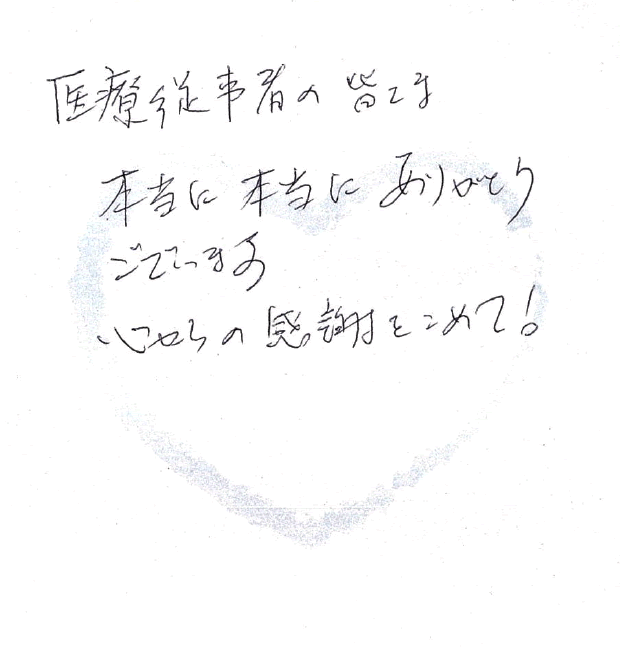 医療従事者の皆さま
本当に本当にありがとう
ございます
心からの感謝をこめて!